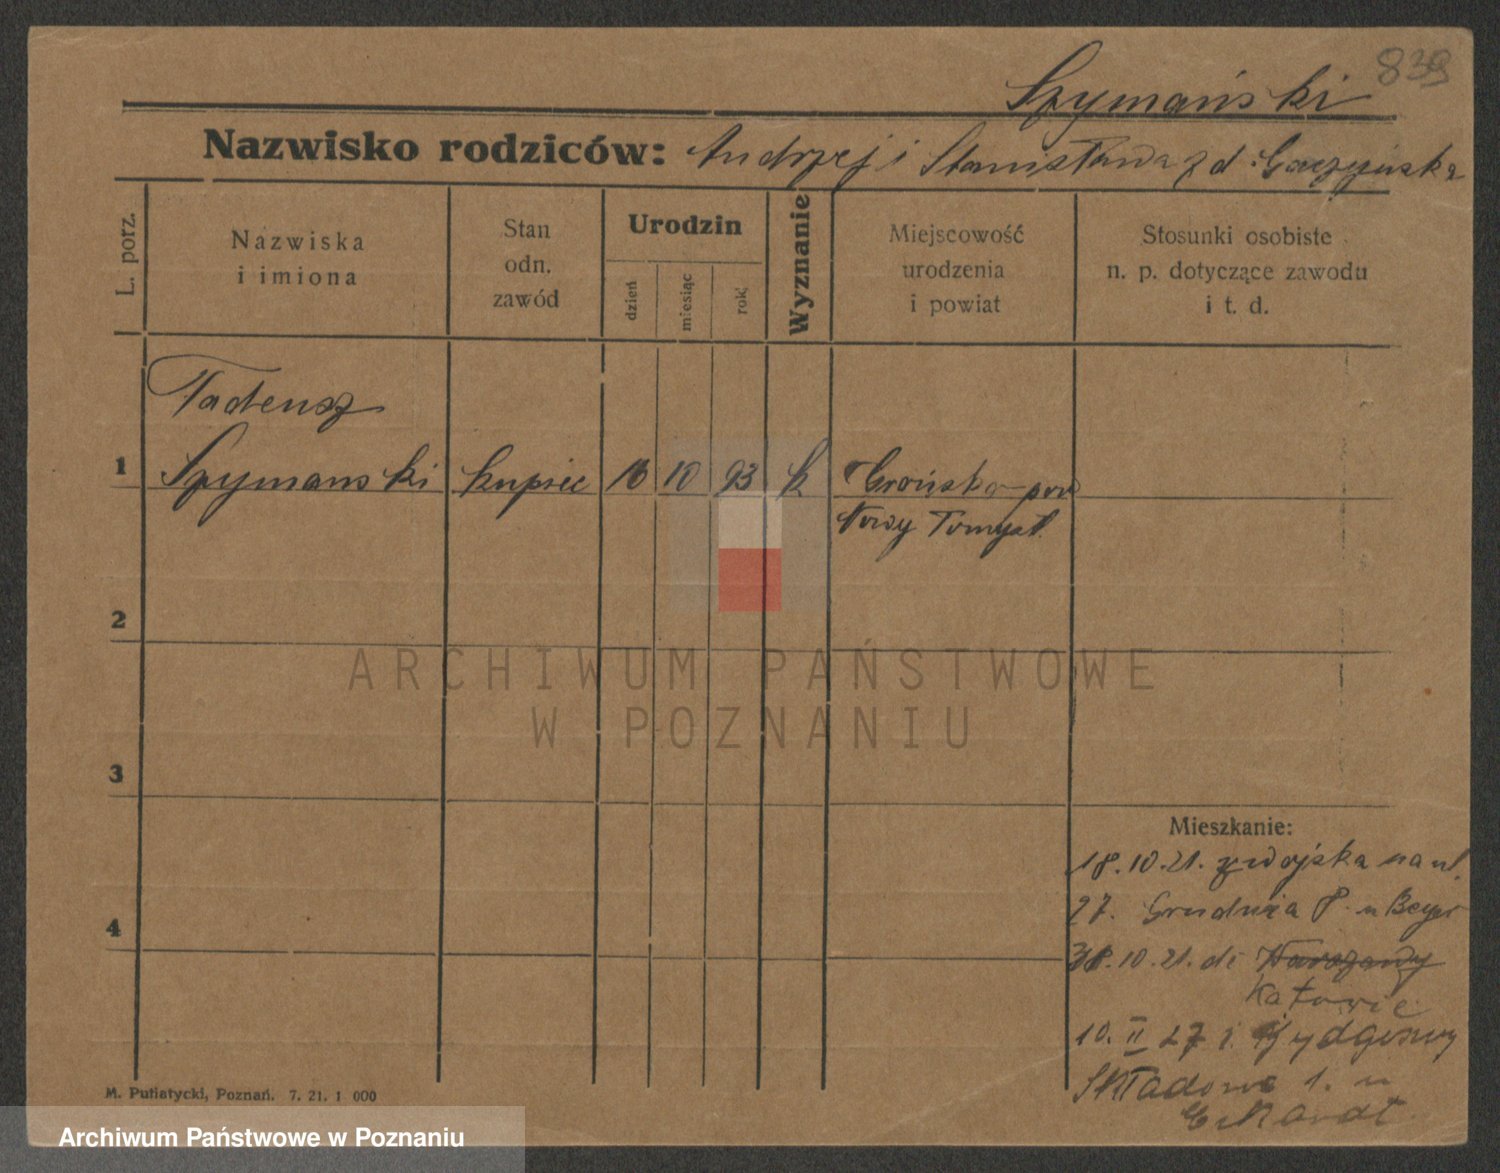 839
Szymański
Nazwisko rodziców: Andrzej i Stanisława z d.
L. porz.
Nazwiska
i imiona
Stan
odn.
zawód
Urodzin
dzień
miesiąc
rok
Wyznanie
Miejscowość
urodzenia
i powiat
Stosunki osobiste
n. p. dotyczące zawodu
i t. d.
Tadeusz
1 Szymanski kupiec 16 10 93 k Grońsko pow
Nowy Tomysl.
2
ARCHIWUM PAŃSTWOWE
W POZNANIU
3
Mieszkanie:
18.10.21. z wojska na ul.
27. Grudnia 8 u Beyer
4
31.10.21. do Warszawy
Katowic
10. II 27 z Bydgoszczy
Składowa 1. u
M. Putiatycki, Poznań. 7. 21. 1 000
Archiwum Państwowe w Poznaniu